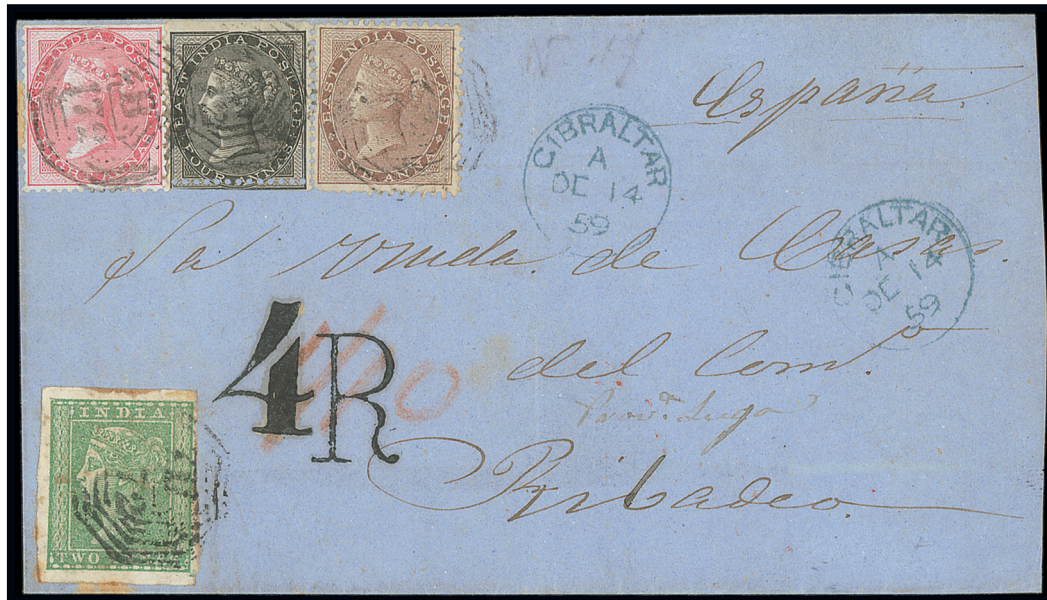 EAST INDIA POSTAGE
EIGHT ANNAS
EAST INDIA POSTAGE
FOUR ANNAS
EAST INDIA POSTAGE
ONE ANNA
España.
GIBRALTAR
A
DE 14
59
GIBRALTAR
A
DE 14
59
Sa Viuda de Casas
del Com.o
4R
Prov.a Lugo
Ribadeo.
INDIA
TWO ANNAS